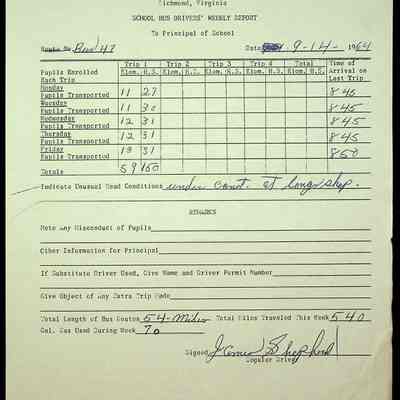 Richmond, Virginia
SCHOOL BUS DRIVERS' WEEKLY REPORT
To Principal of School
Route No. Bus 47 Date 9-14- 1964
Trip 1 Trip 2 Trip 3 Trip 4 Total Time of
Pupils Enrolled Elem. H.S. Elem. H.S. Elem. H.S. Elem. H.S. Elem. H.S. Arrival on
Each Trip Last Trip
Monday
Pupils Transported 11 27 845
Tuesday
Pupils Transported 11 30 845
Wednesday
Pupils Transported 12 31 845
Thursday
Pupils Transported 12 31 845
Friday
Pupils Transported 13 31 850
Totals 59 150
Indicate Unusual Road Conditions under const. at long shop.
REMARKS
Note Any Misconduct of Pupils
Other Information for Principal
If Substitute Driver Used, Give Name and Driver Permit Number
Give Object of Any Extra Trip Made
Total Length of Bus Routes 54-Miles Total Miles Traveled This Week 540
Gal. Gas Used During Week 70
Signed James Shepherd
Regular Driver